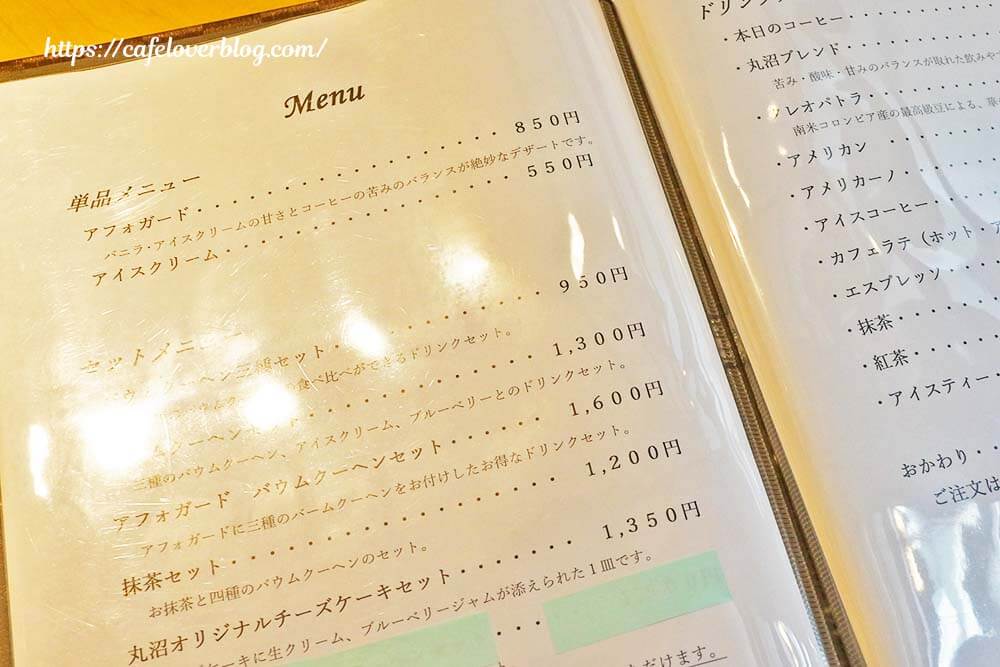 https://cafeloverblog.com/
Menu
単品メニュー
アフォガード・・・・・・・・・・・・・・・・850円
バニラ・アイスクリームの甘さとコーヒーの苦みのバランスが絶妙なデザートです。
アイスクリーム・・・・・・・・・・・・・・・550円
セットメニュー
三種セット・・・・・・・・950円
食べ比べができるドリンクセット。
・・・・・・・・・・1,300円
三種のバウムクーヘン、アイスクリーム、ブルーベリーとのドリンクセット。
アフォガード バウムクーヘンセット・・・・・・1,600円
アフォガードに三種のバームクーヘンをお付けしたお得なドリンクセット。
抹茶セット・・・・・・・・・・・・・・・1,200円
お抹茶と四種のバウムクーヘンのセット。
丸沼オリジナルチーズケーキセット・・・・・・・1,350円
ケーキに生クリーム、ブルーベリージャムが添えられた1皿です。
・・・
だけます。
・本日のコーヒー・・・・
・丸沼ブレンド・・・・
苦み・酸味・甘みのバランスが取れた飲みや
レオパトラ・・・・・・
南米コロンビア産の最高級豆による、華
・アメリカン・・・・・
・アメリカーノ・・・・
・アイスコーヒー・・・・
・カフェラテ（ホット・ア
・エスプレッソ・・・・
・抹茶・・・・・・
・紅茶・・・・・・
・アイスティー・・・・
おかわり・
ご注文は